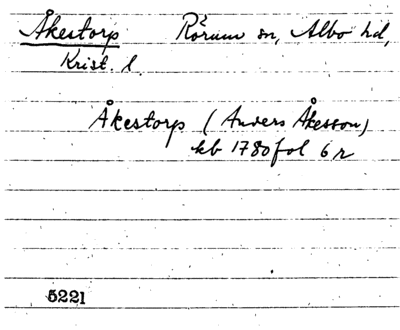 Åkestorp Rörum sn, Albo hd,
Krist. l.
Åkestorp (Anders Åkesson)
kb 1780 fol 6 r
5221